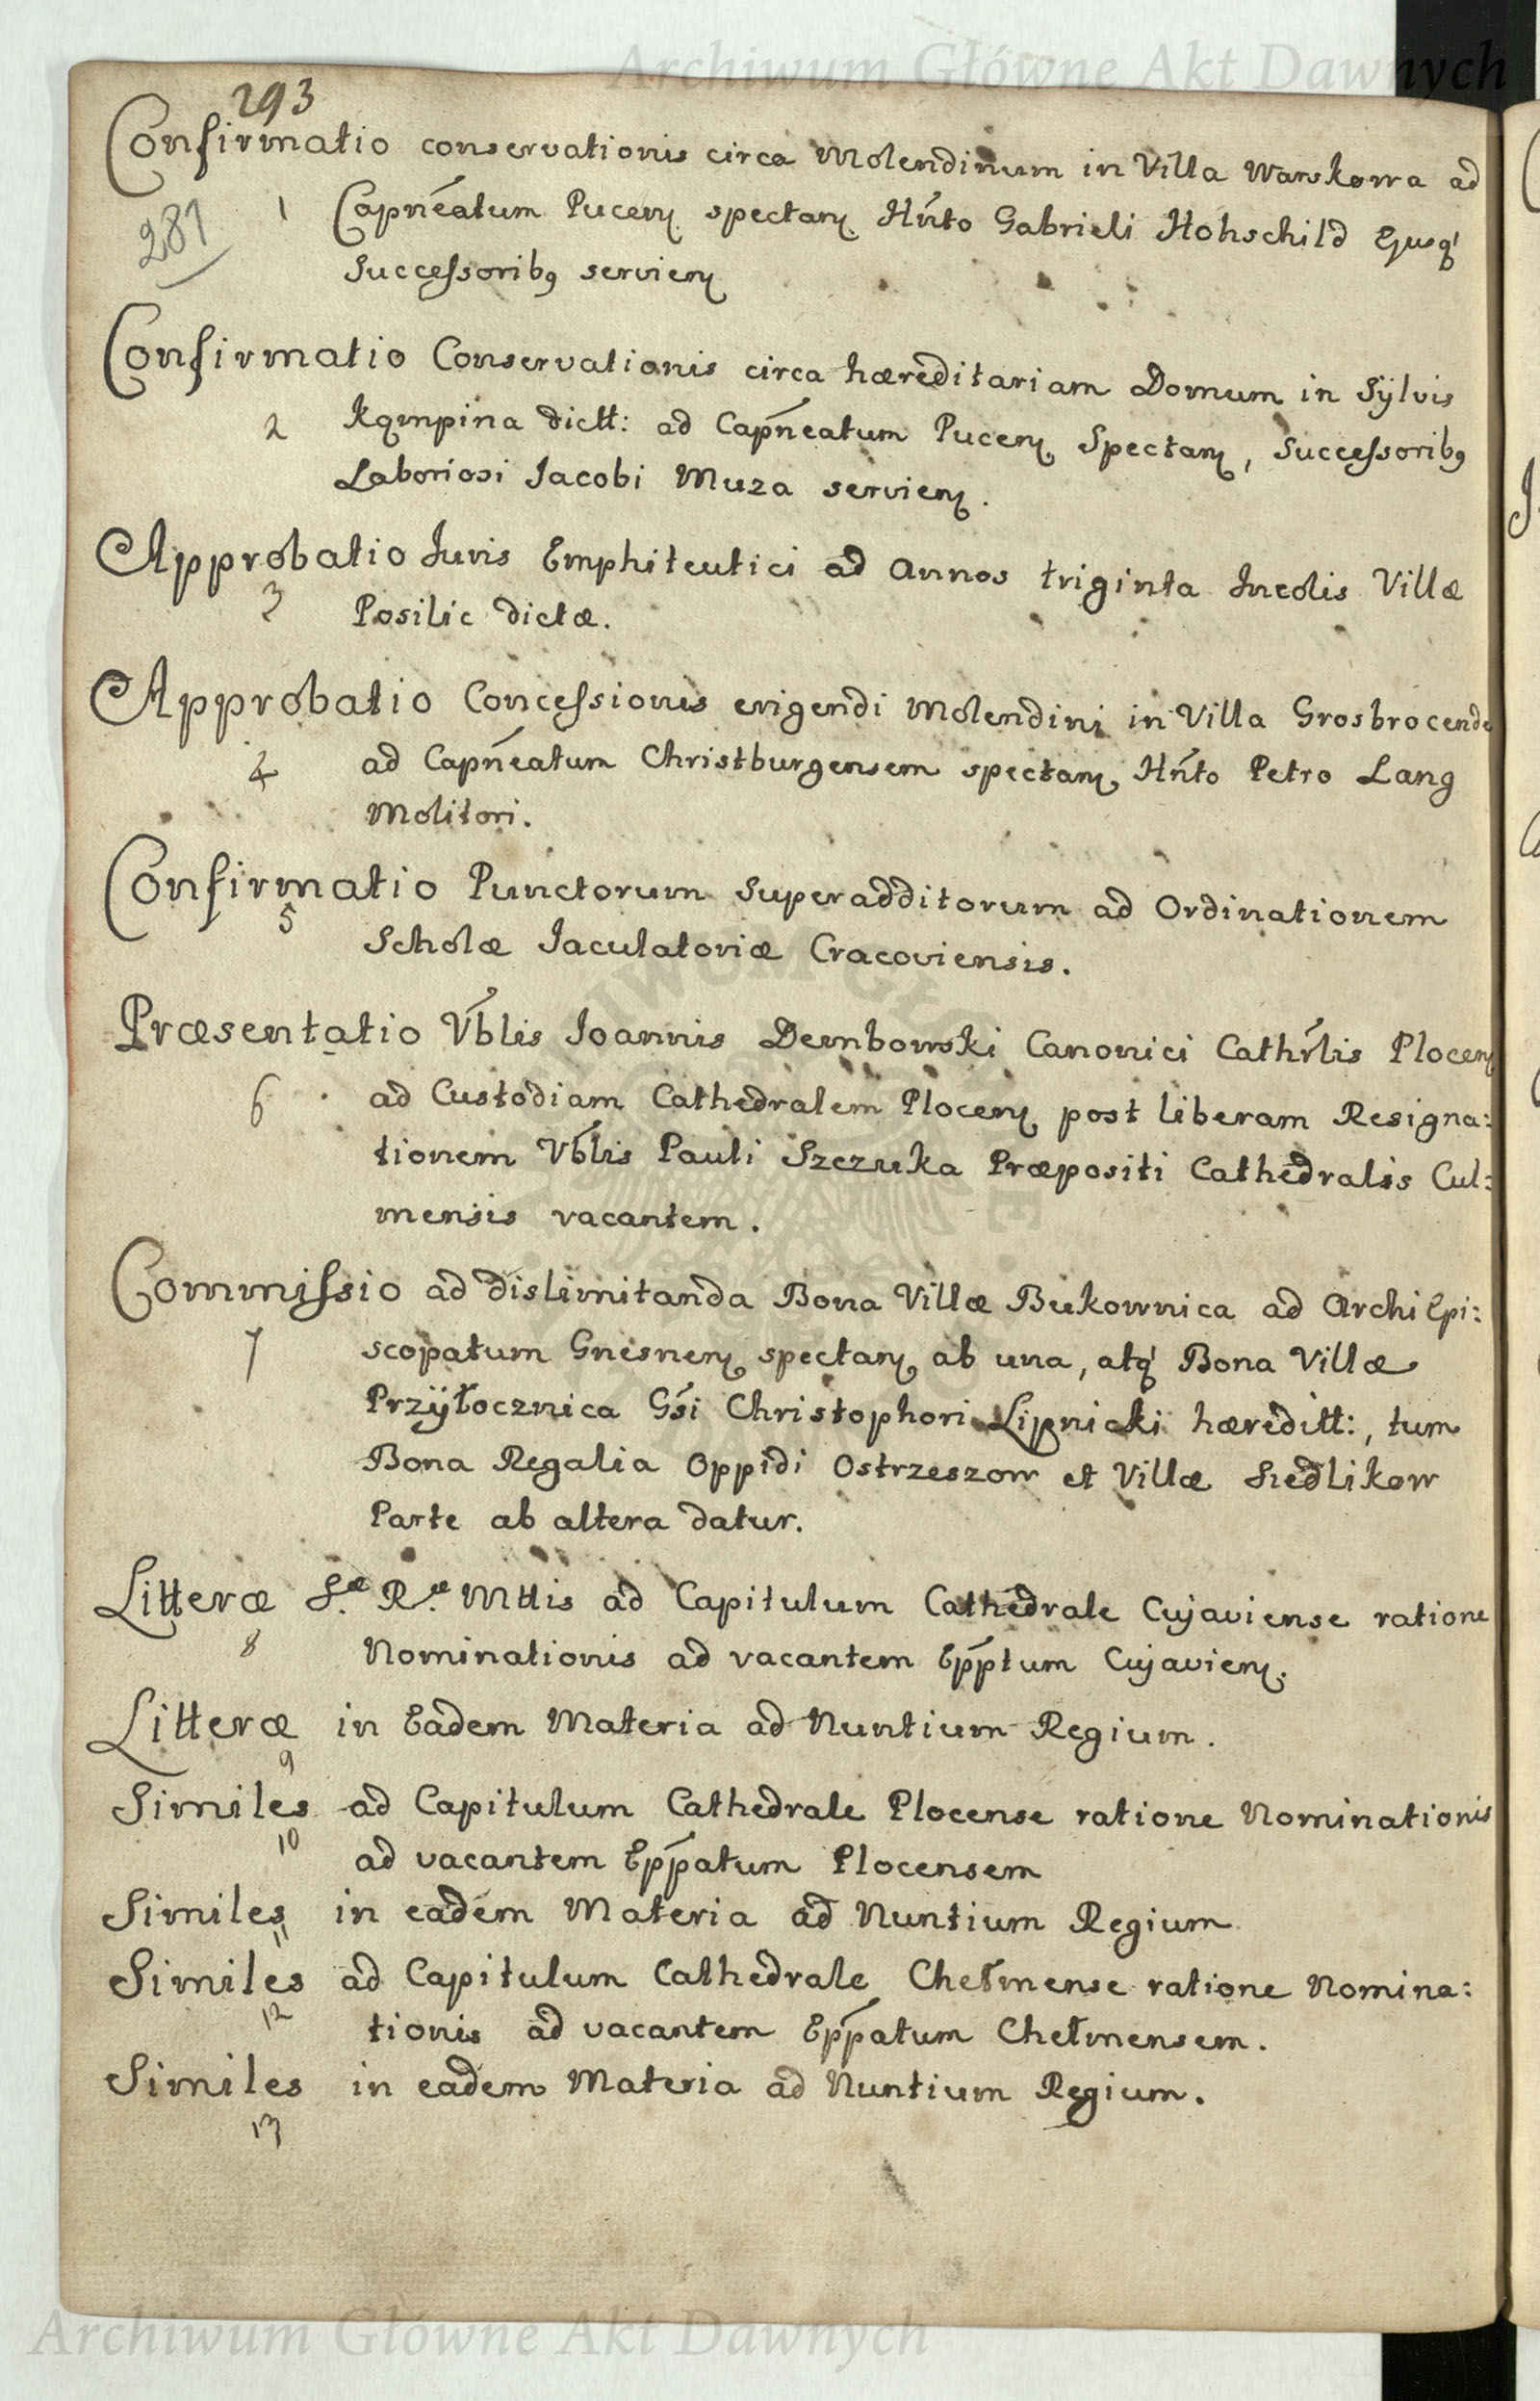 Archiwum Główne Akt Dawnych
293
Confirmatio conservationis circa Molendinum in Villa Warskowa ad
281
1 Capn̄eatum Pucen̄ spectan̄ Hn̄to Gabrieli Hohschild Ejusq́
Successorib9 servien̄
Confirmatio Conservationis circa hæreditariam Domum in Sÿlvis
2 Kąmpina dictt: ad Capn̄eatum Pucen̄ Spectan̄, Successorib9
Laboriosi Jacobi Muza servien̄.
Approbatio Juris Emphiteutici ad Annos triginta Incolis Villæ
3 Posilic dictæ.
Approbatio Concessionis erigendi Molendini in Villa Grosbrocende
4 ad Capn̄eatum Christburgensem spectan̄ Hn̄to Petro Lang
Molitori.
Confirmatio Punctorum Superadditorum ad Ordinationem
5 Scholæ Jaculatoriæ Cracoviensis.
Præsentatio Vb́lis Joannis Dembowski Canonici Cathŕlis Plocen̄
6 ad Custodiam Cathedralem Plocen̄ post liberam Resigna:
tionem Vb́lis Pauli Szczuka Præpositi Cathedralis Cul:
mensis vacantem.
Commissio ad dislimitanda Bona Villæ Bukownica ad Archi Epi:
7 scopatum Gnesnen̄ spectan̄ ab una, atq́ Bona Villæ
Przÿłocznica Gśi Christophori Lipnicki hæreditt:, tum
Bona Regalia Oppidi Ostrzeszow et Villæ Siedlikow
Parte ab altera datur.
Litteræ S.æ R.æ Mttis ad Capitulum Cathedrale Cujaviense ratione
8 Nominationis ad vacantem Epṕtum Cujavien̄.
Litteræ in Eadem Materia ad Nuntium Regium.
9
Similes ad Capitulum Cathedrale Plocense ratione Nominationis
10 ad vacantem Epṕatum Plocensem
Similes in eadem Materia ad Nuntium Regium
11
Similes ad Capitulum Cathedrale Chełmense ratione Nomina:
12 tionis ad vacantem Epṕatum Chełmensem.
Similes in eadem Materia ad Nuntium Regium.
13
Archiwum Główne Akt Dawnych